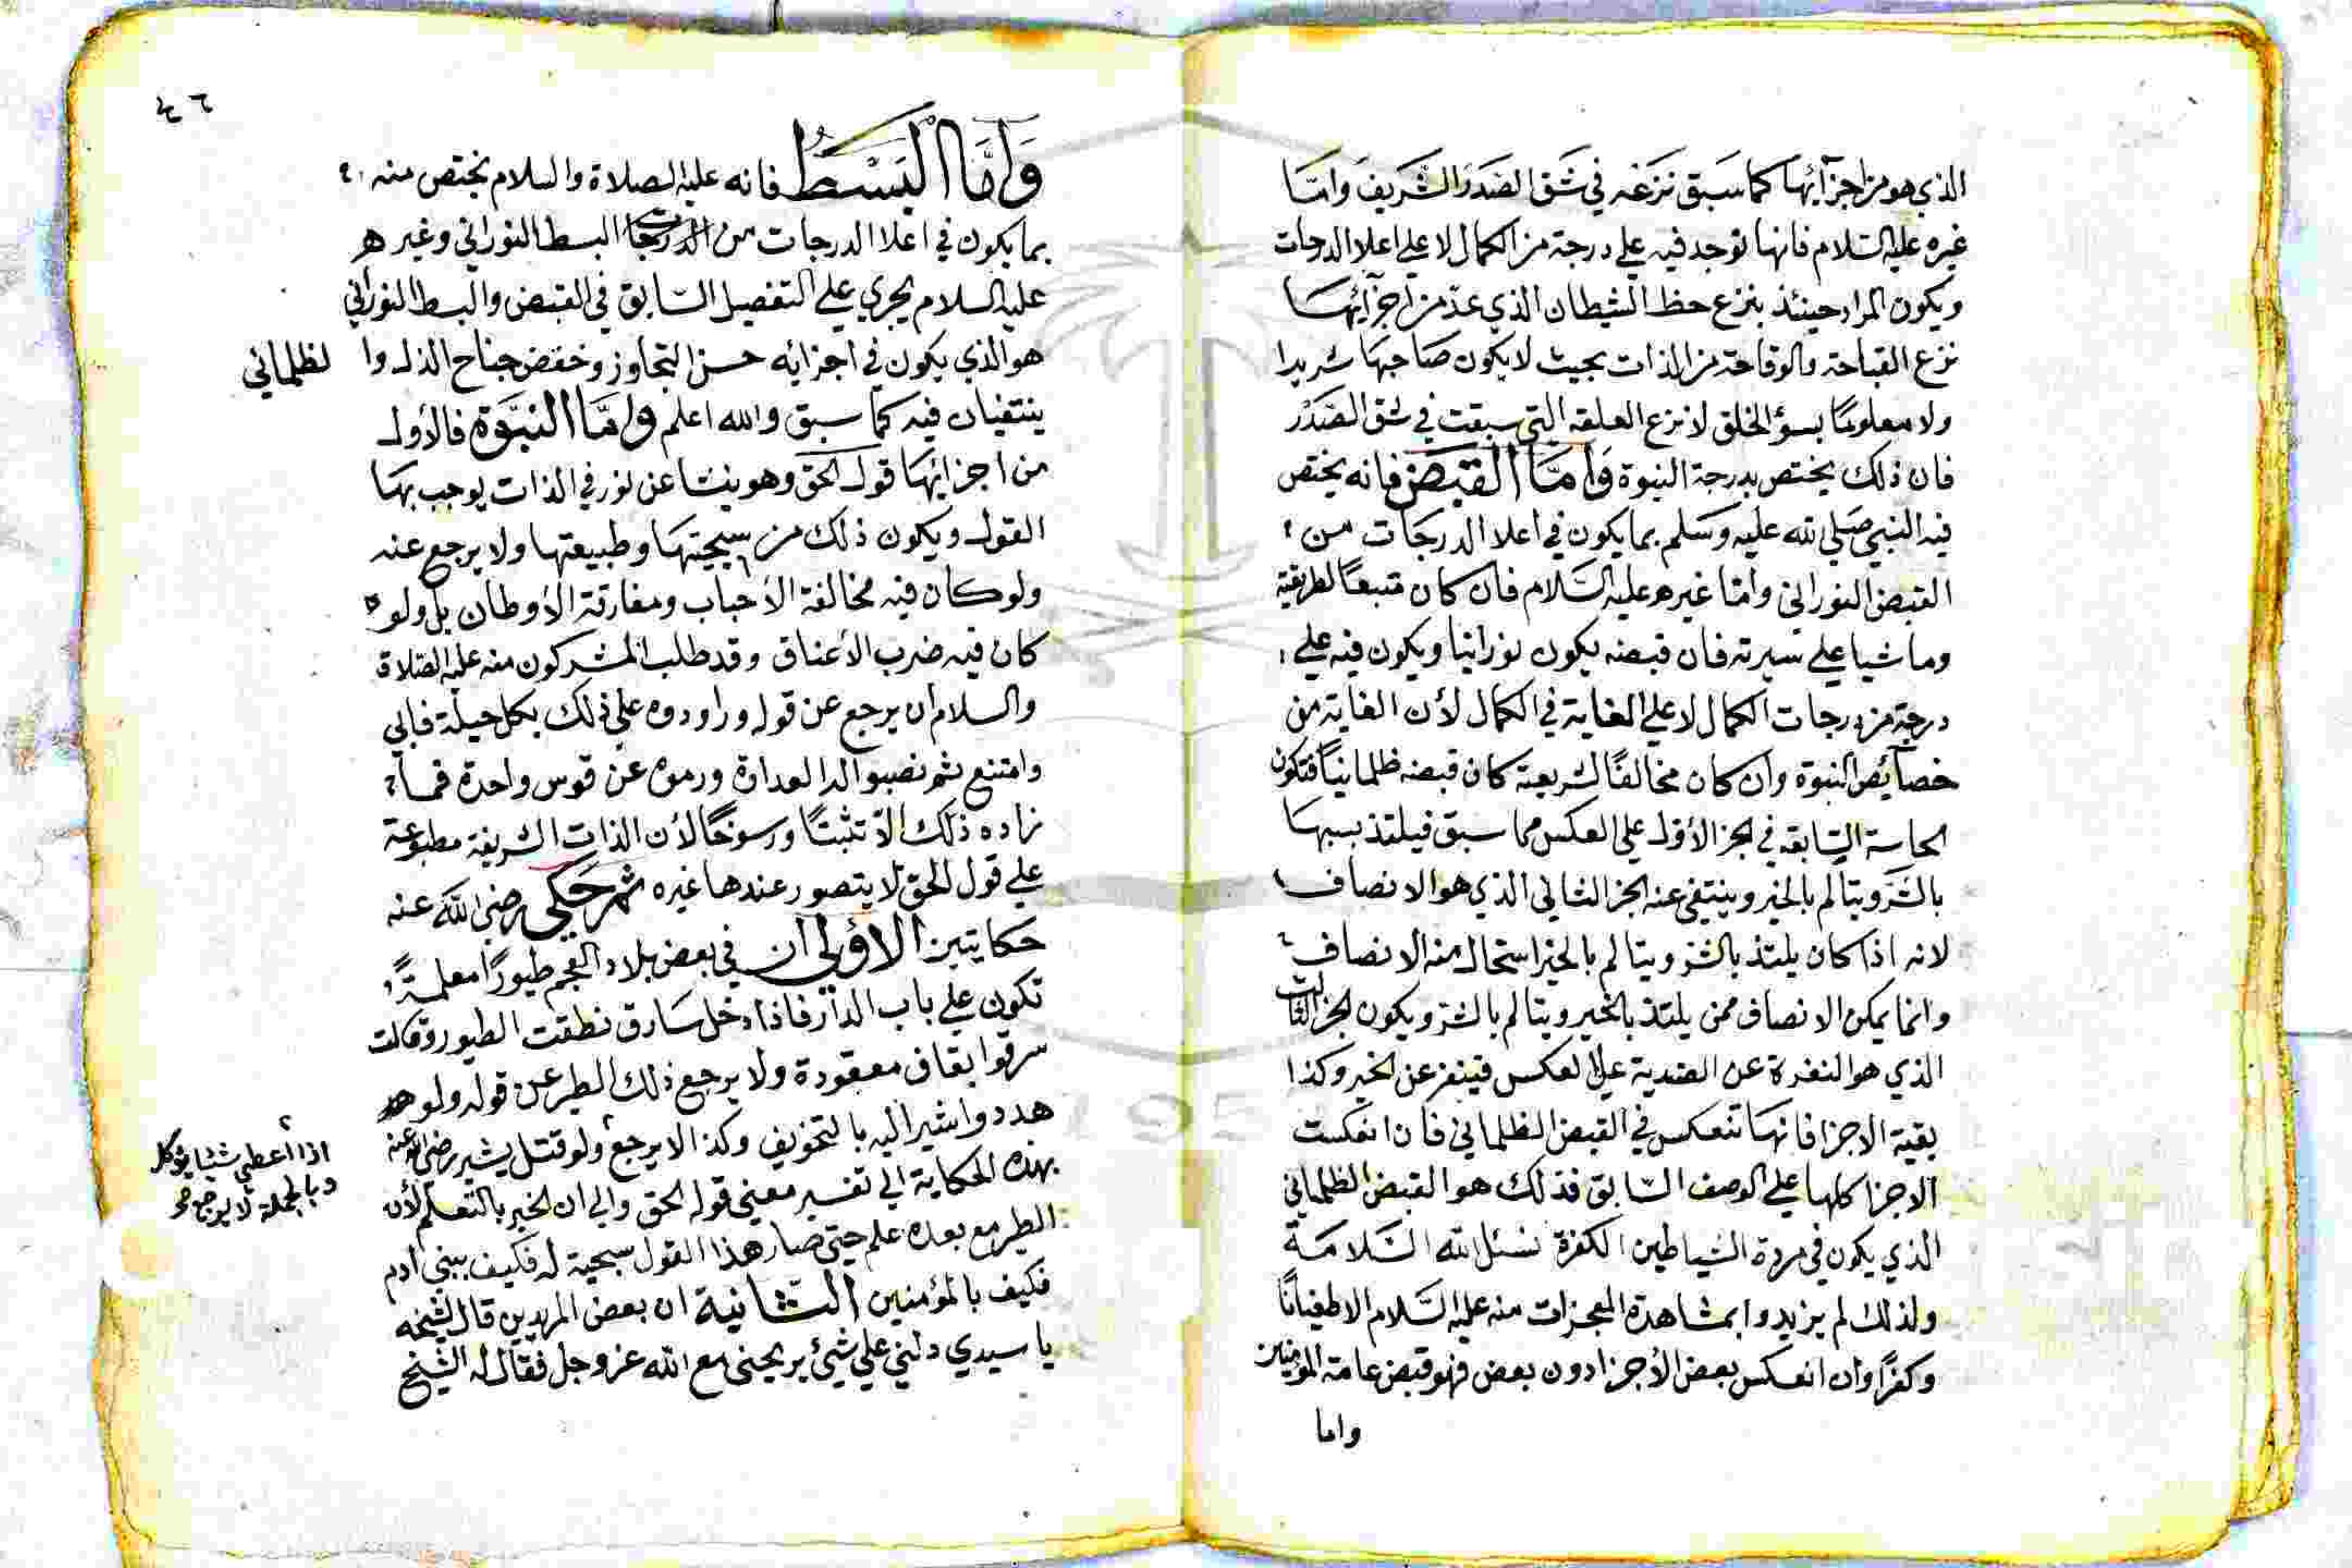 الذي هو من اجزآئها كما سبق نزعه في شق الصدر الشريف وامّا
غيره عليه السلام فانها توجد فيه علي درجة من الكمال لا علي اعلا الدرجات
ويكون المراد حينئذ بنزع حظ الشيطان الذي عدّ من اجزآئها
نزع القباحة والوقاحة من الذات بحيث لا يكون صاحبها شريرا
ولا معلومًا بسؤ الخلق لا نزع العلقه التي سبقت في شق الصدر
فان ذلك يختص بدرجة النبوة وَامّا القبض فانه يختص
فيه النبي صلي الله عليه وسلم بما يكون في اعلا الدرجات من
القبض النوراني وامّا غيره عليه السلام فان كان متبعًا لطريقته
وماشيا علي سيرته فان قبضه يكون نورانيا ويكون فيه علي
درجة من درجات الكمال لا علي الغاية في الكمال لأن الغاية من
خصآئص النبوة وان كان مخالفًا لشريعته كان قبضه ظلمانيًا فتكون
الحاسة السّابقه في الجز الأول علي العكس مما سبق فيلتذ بسببها
بالشر ويتالم بالخير وينتفي عنه الجز الثاني الذي هو الانصاف
لانه اذا كان يلتذ بالشر ويتالم بالخير استحال منه الانصاف
وانما يمكن الانصاف ممن يلتذ بالخير ويتالم بالشر ويكون الجز الثالث
الذي هو النفرة عن الضدية علي العكس فينفر عن الخير وكذا
بقية الاجزا فانها تنعكس في القبض الظلماني فان انعكست
الاجزا كلها علي الوصف السّابق فذلك هو القبض الظلماني
الذي يكون في مردة الشياطين الكفرة نسئل الله السّلامة
ولذلك لم يزيدوا بمشاهدة المعجزات منه عليه السّلام الا طغيانًا
وكفرًا وان انعكس بعض الأجزا دون بعض فهو قبض عامة المؤمنين
واما
٤٦
وَامَّا الْبَسْطُ فانه عليه الصلاة والسلام يختص منه
بما يكون في اعلا الدرجات من البسط النوراني وغيره
عليه السلام يجري علي التفصيل السّابق في القبض والبسط النوراني
هو الذي يكون في اجزايه حسن التجاوز وخفض جناح الذل وا لظلماني
ينتفيان فيه كما سبق والله اعلم وامّا النبّوة فالأول
من اجزائها قول الحق وهو ينشا عن نور في الذات يوجب بها
القول ويكون ذلك من سجيتها وطبيعتها ولا يرجع عنه
ولو كان فيه مخالفة الأحباب ومفارقة الأوطان بل ولو
كان فيه ضرب الأعناق وقد طلب المشركون منه عليه الصّلاة
والسلام ان يرجع عن قوله وراودوه علي ذلك بكل حيلة فابي
وامتنع ثم نصبوا له العداوة ورموه عن قوس واحدة فما
زاده ذلك الّا تثبتًا ورسوخًا لأن الذات الشريفة مطبوعة
علي قول الحق لا يتصور عندها غيره ثم حكي رضي الله عنه
حكايتين الأولي ان في بعض بلاد العجم طيورًا معلمةً
تكون علي باب الدار فاذا دخل سارق نطقت الطيور وقالت
سرقوا بقاف معقودة ولا يرجع ذلك الطير عن قوله ولو
هدد واشير اليه بالتخويف وكذا لا يرجع ولو قتل يشير رضي الله عنه
اذا اعطي شيئا يؤكل
وبالجملة لا يرجع
بهذه الحكاية الي تفسير معني قول الحق والي ان الخير بالتعلم لأن
الطير مع بعده علم حتي صار هذا القول سجية له فكيف ببني ادم
فكيف بالمؤمنين الثانية ان بعض المريدين قال لشيخه
يا سيدي دلني علي شئ يريحني مع الله عز وجل فقال له الشيخ